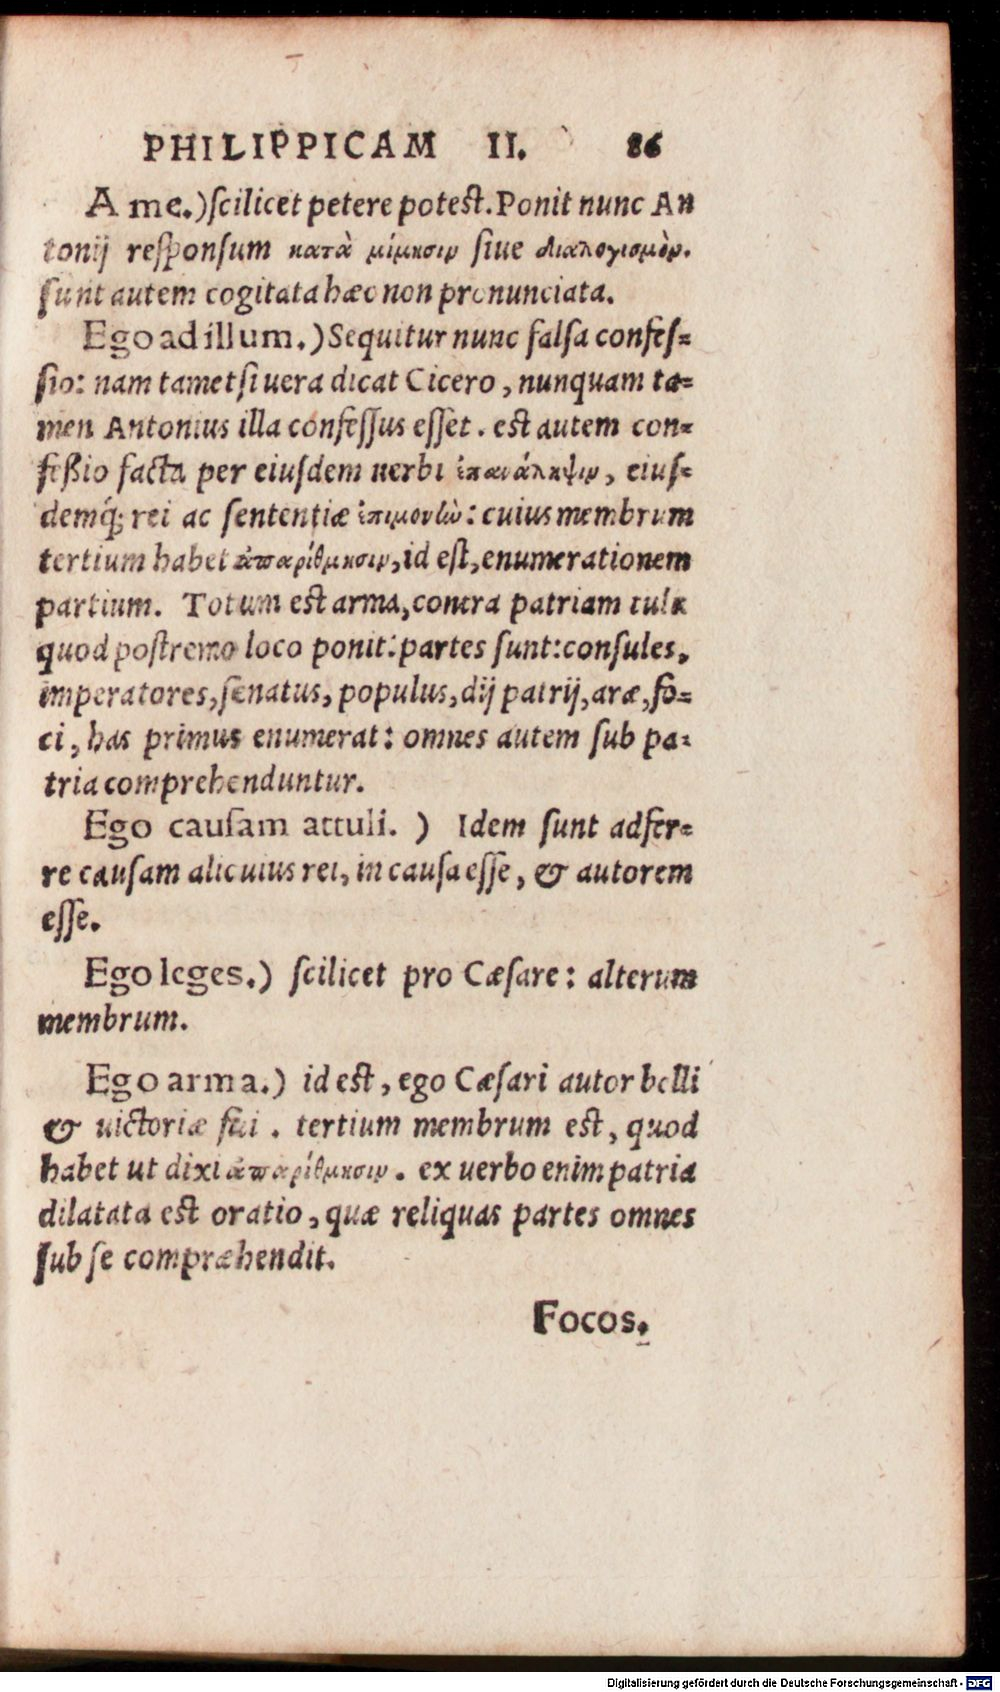 PHILIPPICAM II. 86
A me.) ſcilicet petere poteſt. Ponit nunc An
tonij reſponſum κατὰ μίμησιν ſiue διαλογισμὸν.
ſunt autem cogitata hæc non pronunciata.
Ego ad illum.) Sequitur nunc falſa confeſ=
ſio: nam tametſi uera dicat Cicero, nunquam ta=
men Antonius illa confeſſus eſſet. eſt autem con=
feßio facta per eiuſdem uerbi ἐπανάληψιν, eiuſ=
demq́; rei ac ſententiæ ἐπιμονὼ: cuius membrum
tertium habet ἀπαρίθμησιν, id eſt, enumerationem
partium. Totum eſt arma, contra patriam tuli
quod poſtremo loco ponit: partes ſunt: conſules,
imperatores, ſenatus, populus, dij patrij, aræ, fo=
ci, has primus enumerat: omnes autem ſub pa=
tria comprehenduntur.
Ego cauſam attuli. ) Idem ſunt adfer=
re cauſam alicuius rei, in cauſa eſſe, & autorem
eſſe.
Ego leges.) ſcilicet pro Cæſare: alterum
membrum.
Ego arma.) id eſt, ego Cæſari autor belli
& uictoriæ fui. tertium membrum eſt, quod
habet ut dixi ἀπαρίθμησιν. ex uerbo enim patria
dilatata eſt oratio, quæ reliquas partes omnes
ſub ſe compræhendit.
Focos.
Digitalisierung gefördert durch die Deutsche Forschungsgemeinschaft - DFG